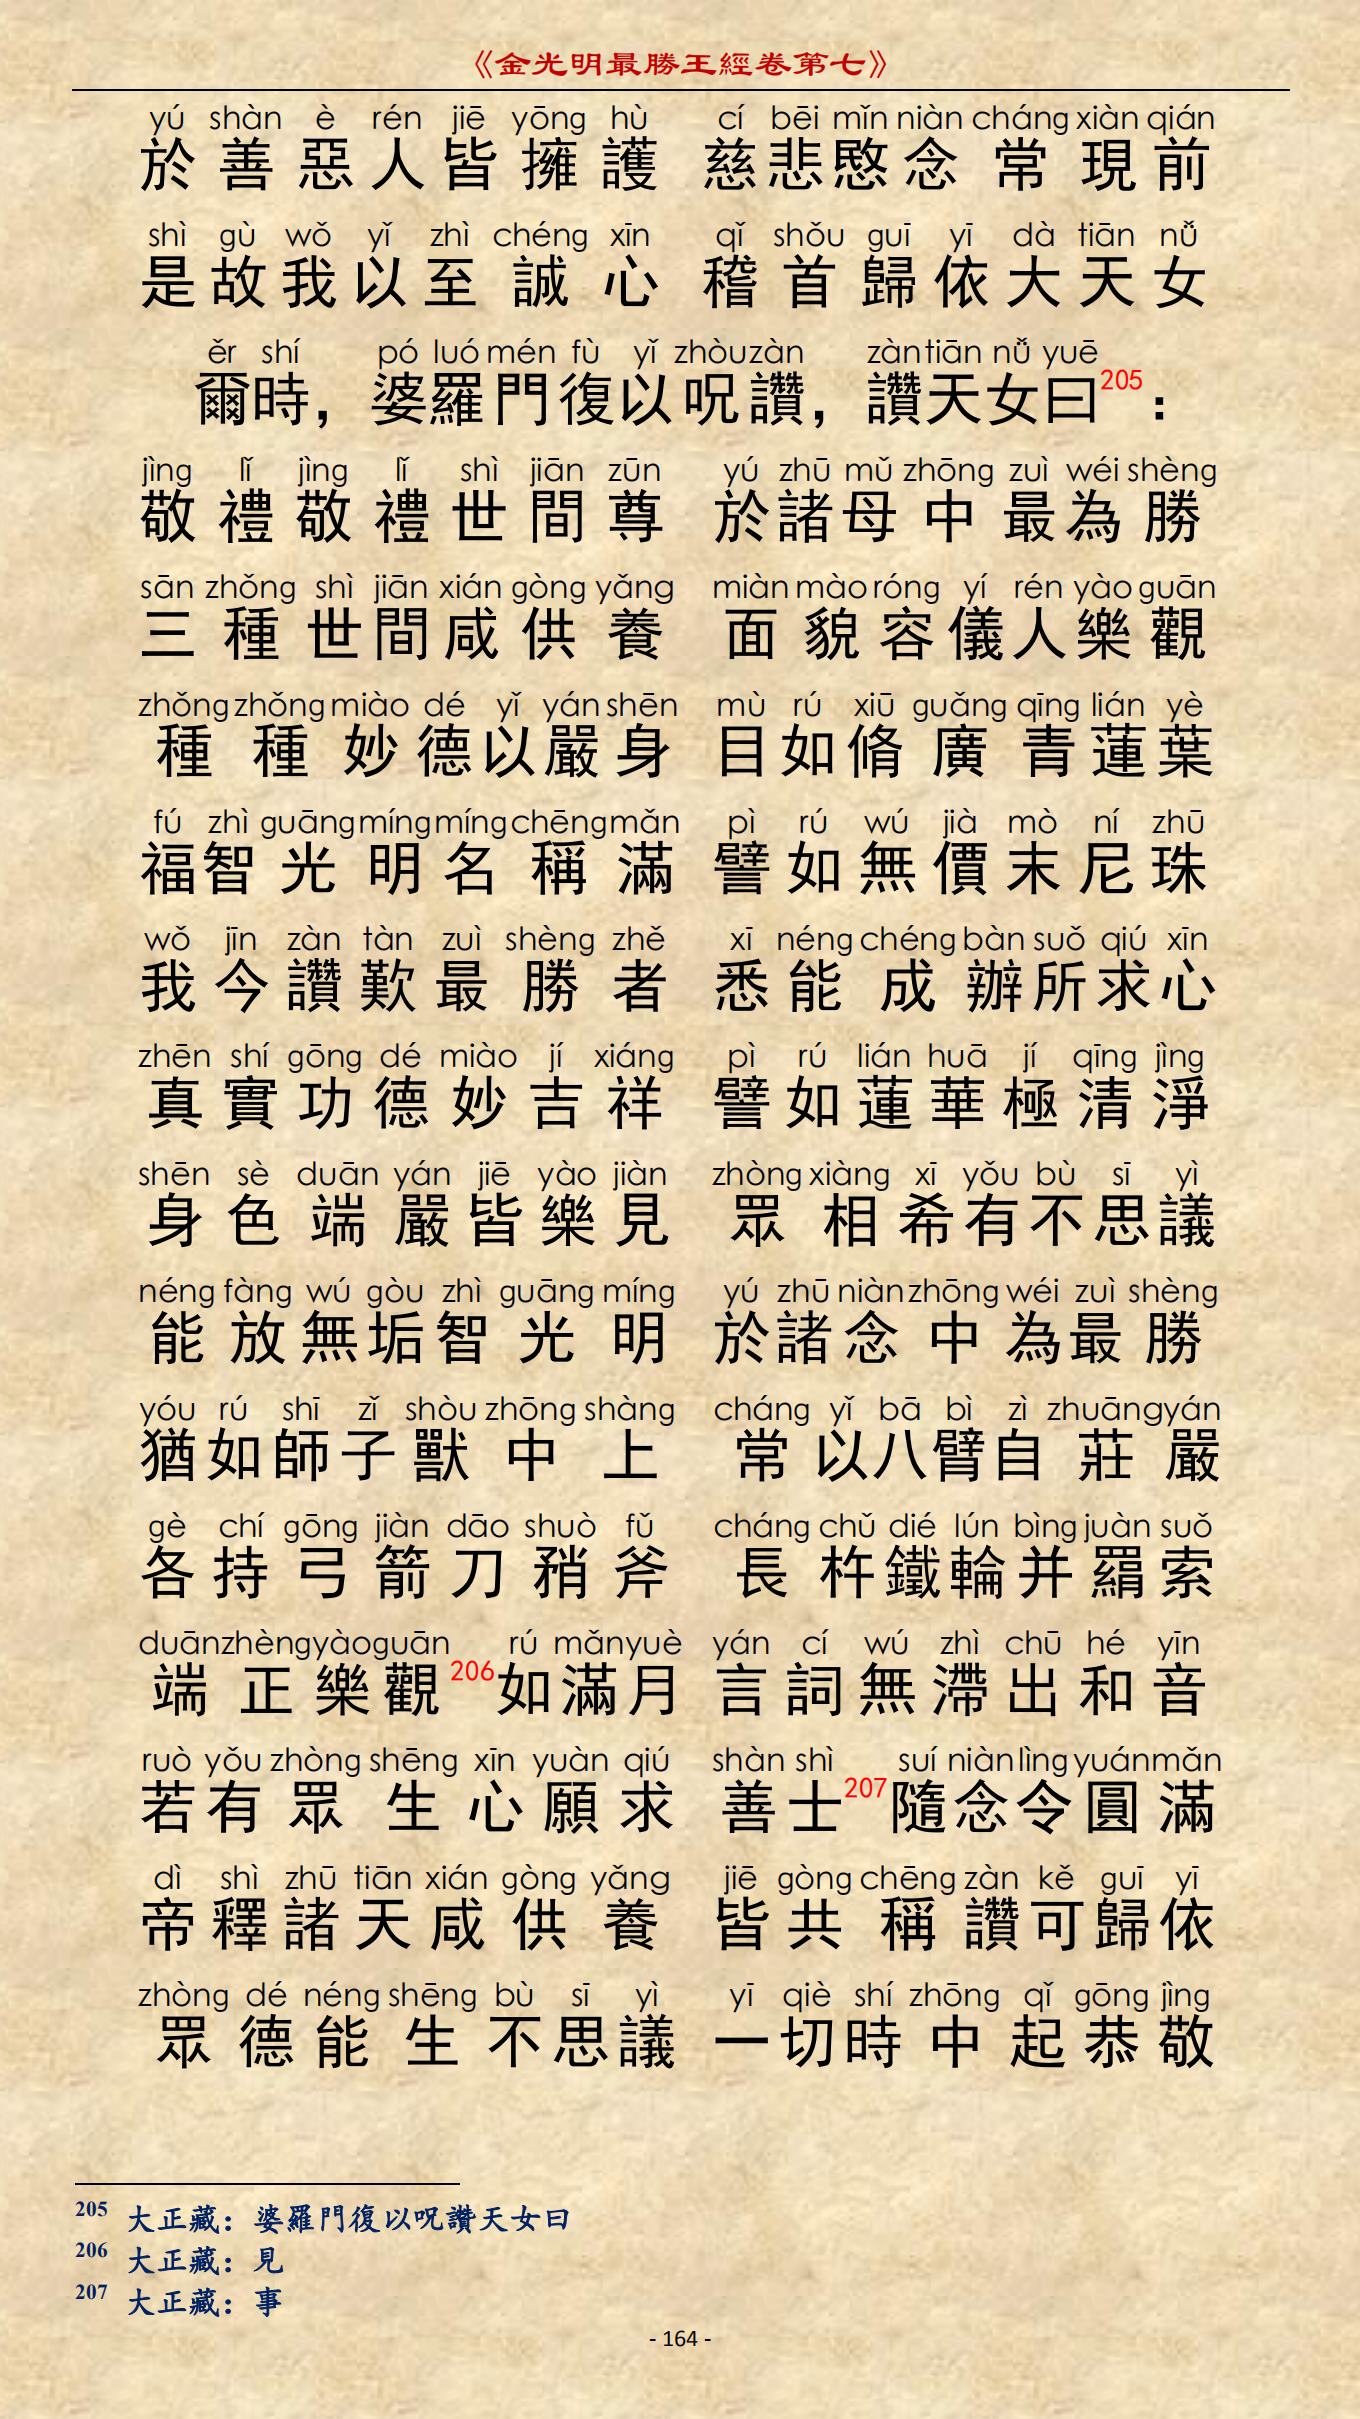 《金光明最勝王經卷第七》
yú shàn è rén jiē yōng hù cí bēi mǐn niàn cháng xiàn qián
於善惡人皆擁護 慈悲愍念常現前
shì gù wǒ yǐ zhì chéng xīn qǐ shǒu guī yī dà tiān nǚ
是故我以至誠心 稽首歸依大天女
ěr shí pó luó mén fù yǐ zhòu zàn zàn tiān nǚ yuē
爾時，婆羅門復以呪讚，讚天女曰205：
jìng lǐ jìng lǐ shì jiān zūn yú zhū mǔ zhōng zuì wéi shèng
敬禮敬禮世間尊 於諸母中最為勝
sān zhǒng shì jiān xián gòng yǎng miàn mào róng yí rén yào guān
三種世間咸供養 面貌容儀人樂觀
zhǒng zhǒng miào dé yǐ yán shēn mù rú xiū guǎng qīng lián yè
種種妙德以嚴身 目如脩廣青蓮葉
fú zhì guāng míng míng chēng mǎn pì rú wú jià mò ní zhū
福智光明名稱滿 譬如無價末尼珠
wǒ jīn zàn tàn zuì shèng zhě xī néng chéng bàn suǒ qiú xīn
我今讚歎最勝者 悉能成辦所求心
zhēn shí gōng dé miào jí xiáng pì rú lián huā jí qīng jìng
真實功德妙吉祥 譬如蓮華極清淨
shēn sè duān yán jiē yào jiàn zhòng xiàng xī yǒu bù sī yì
身色端嚴皆樂見 眾相希有不思議
néng fàng wú gòu zhì guāng míng yú zhū niàn zhōng wéi zuì shèng
能放無垢智光明 於諸念中為最勝
yóu rú shī zǐ shòu zhōng shàng cháng yǐ bā bì zì zhuāng yán
猶如師子獸中上 常以八臂自莊嚴
gè chí gōng jiàn dāo shuò fǔ cháng chǔ dié lún bìng juàn suǒ
各持弓箭刀矟斧 長杵鐵輪并羂索
duān zhèng yào guān rú mǎn yuè yán cí wú zhì chū hé yīn
端正樂觀206如滿月 言詞無滯出和音
ruò yǒu zhòng shēng xīn yuàn qiú shàn shì suí niàn lìng yuán mǎn
若有眾生心願求 善士207隨念令圓滿
dì shì zhū tiān xián gòng yǎng jiē gòng chēng zàn kě guī yī
帝釋諸天咸供養 皆共稱讚可歸依
zhòng dé néng shēng bù sī yì yī qiè shí zhōng qǐ gōng jìng
眾德能生不思議 一切時中起恭敬
205 大正藏：婆羅門復以呪讚天女曰
206 大正藏：見
207 大正藏：事
- 164 -